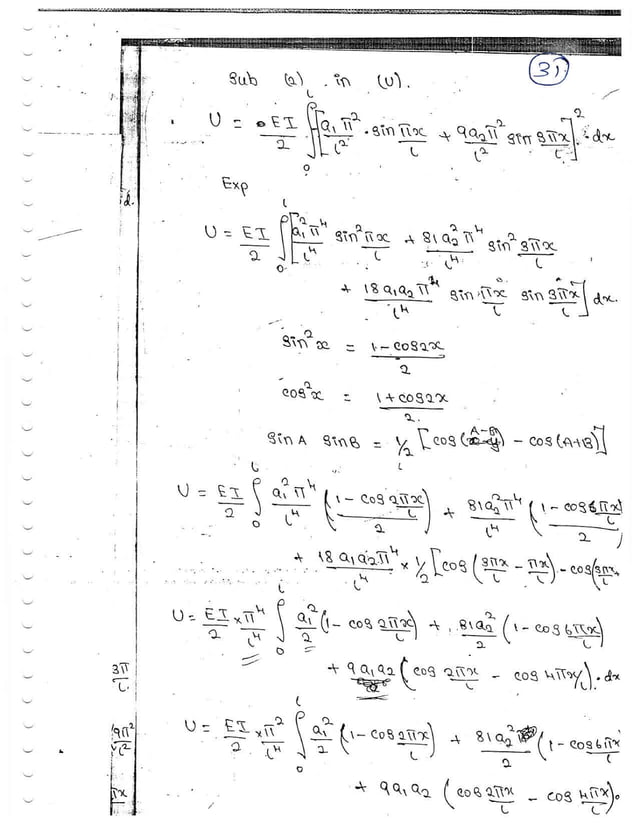 31
Sub (2) in (U).
U = EI/2 ∫₀ˡ [a₁π²/l² · sin πx/l + 9a₂π²/l² sin 3πx/l]² · dx
Exp
U = EI/2 ∫₀ˡ [a₁²π⁴/l⁴ sin² πx/l + 81a₂²π⁴/l⁴ sin² 3πx/l
+ 18a₁a₂π⁴/l⁴ sin πx/l sin 3πx/l] dx.
sin²x = 1-cos2x/2
cos²x = 1+cos2x/2.
sinA sinB = 1/2 [cos(A-B) - cos(A+B)]
U = EI/2 ∫₀ˡ a₁²π⁴/l⁴ (1-cos 2πx/l / 2) + 81a₂²π⁴/l⁴ (1-cos 6πx/l / 2)
+ 18a₁a₂π⁴/l⁴ × 1/2 [cos (3πx/l - πx/l) - cos(3πx
U = EI/2 × π⁴/l⁴ ∫₀ˡ a₁²/2 (1-cos 2πx/l) + 81a₂²/2 (1-cos 6πx/l)
+ 9a₁a₂ (cos 2πx/l - cos 4πx/l) · dx
3π/l
U = EI/2 × π²/l⁴ ∫₀ˡ a₁²/2 (1-cos 2πx/l) + 81a₂²/2 (1-cos 6πx/l
9π²/l²
+ 9a₁a₂ (cos 2πx/l - cos 4πx/l).
πx
d.